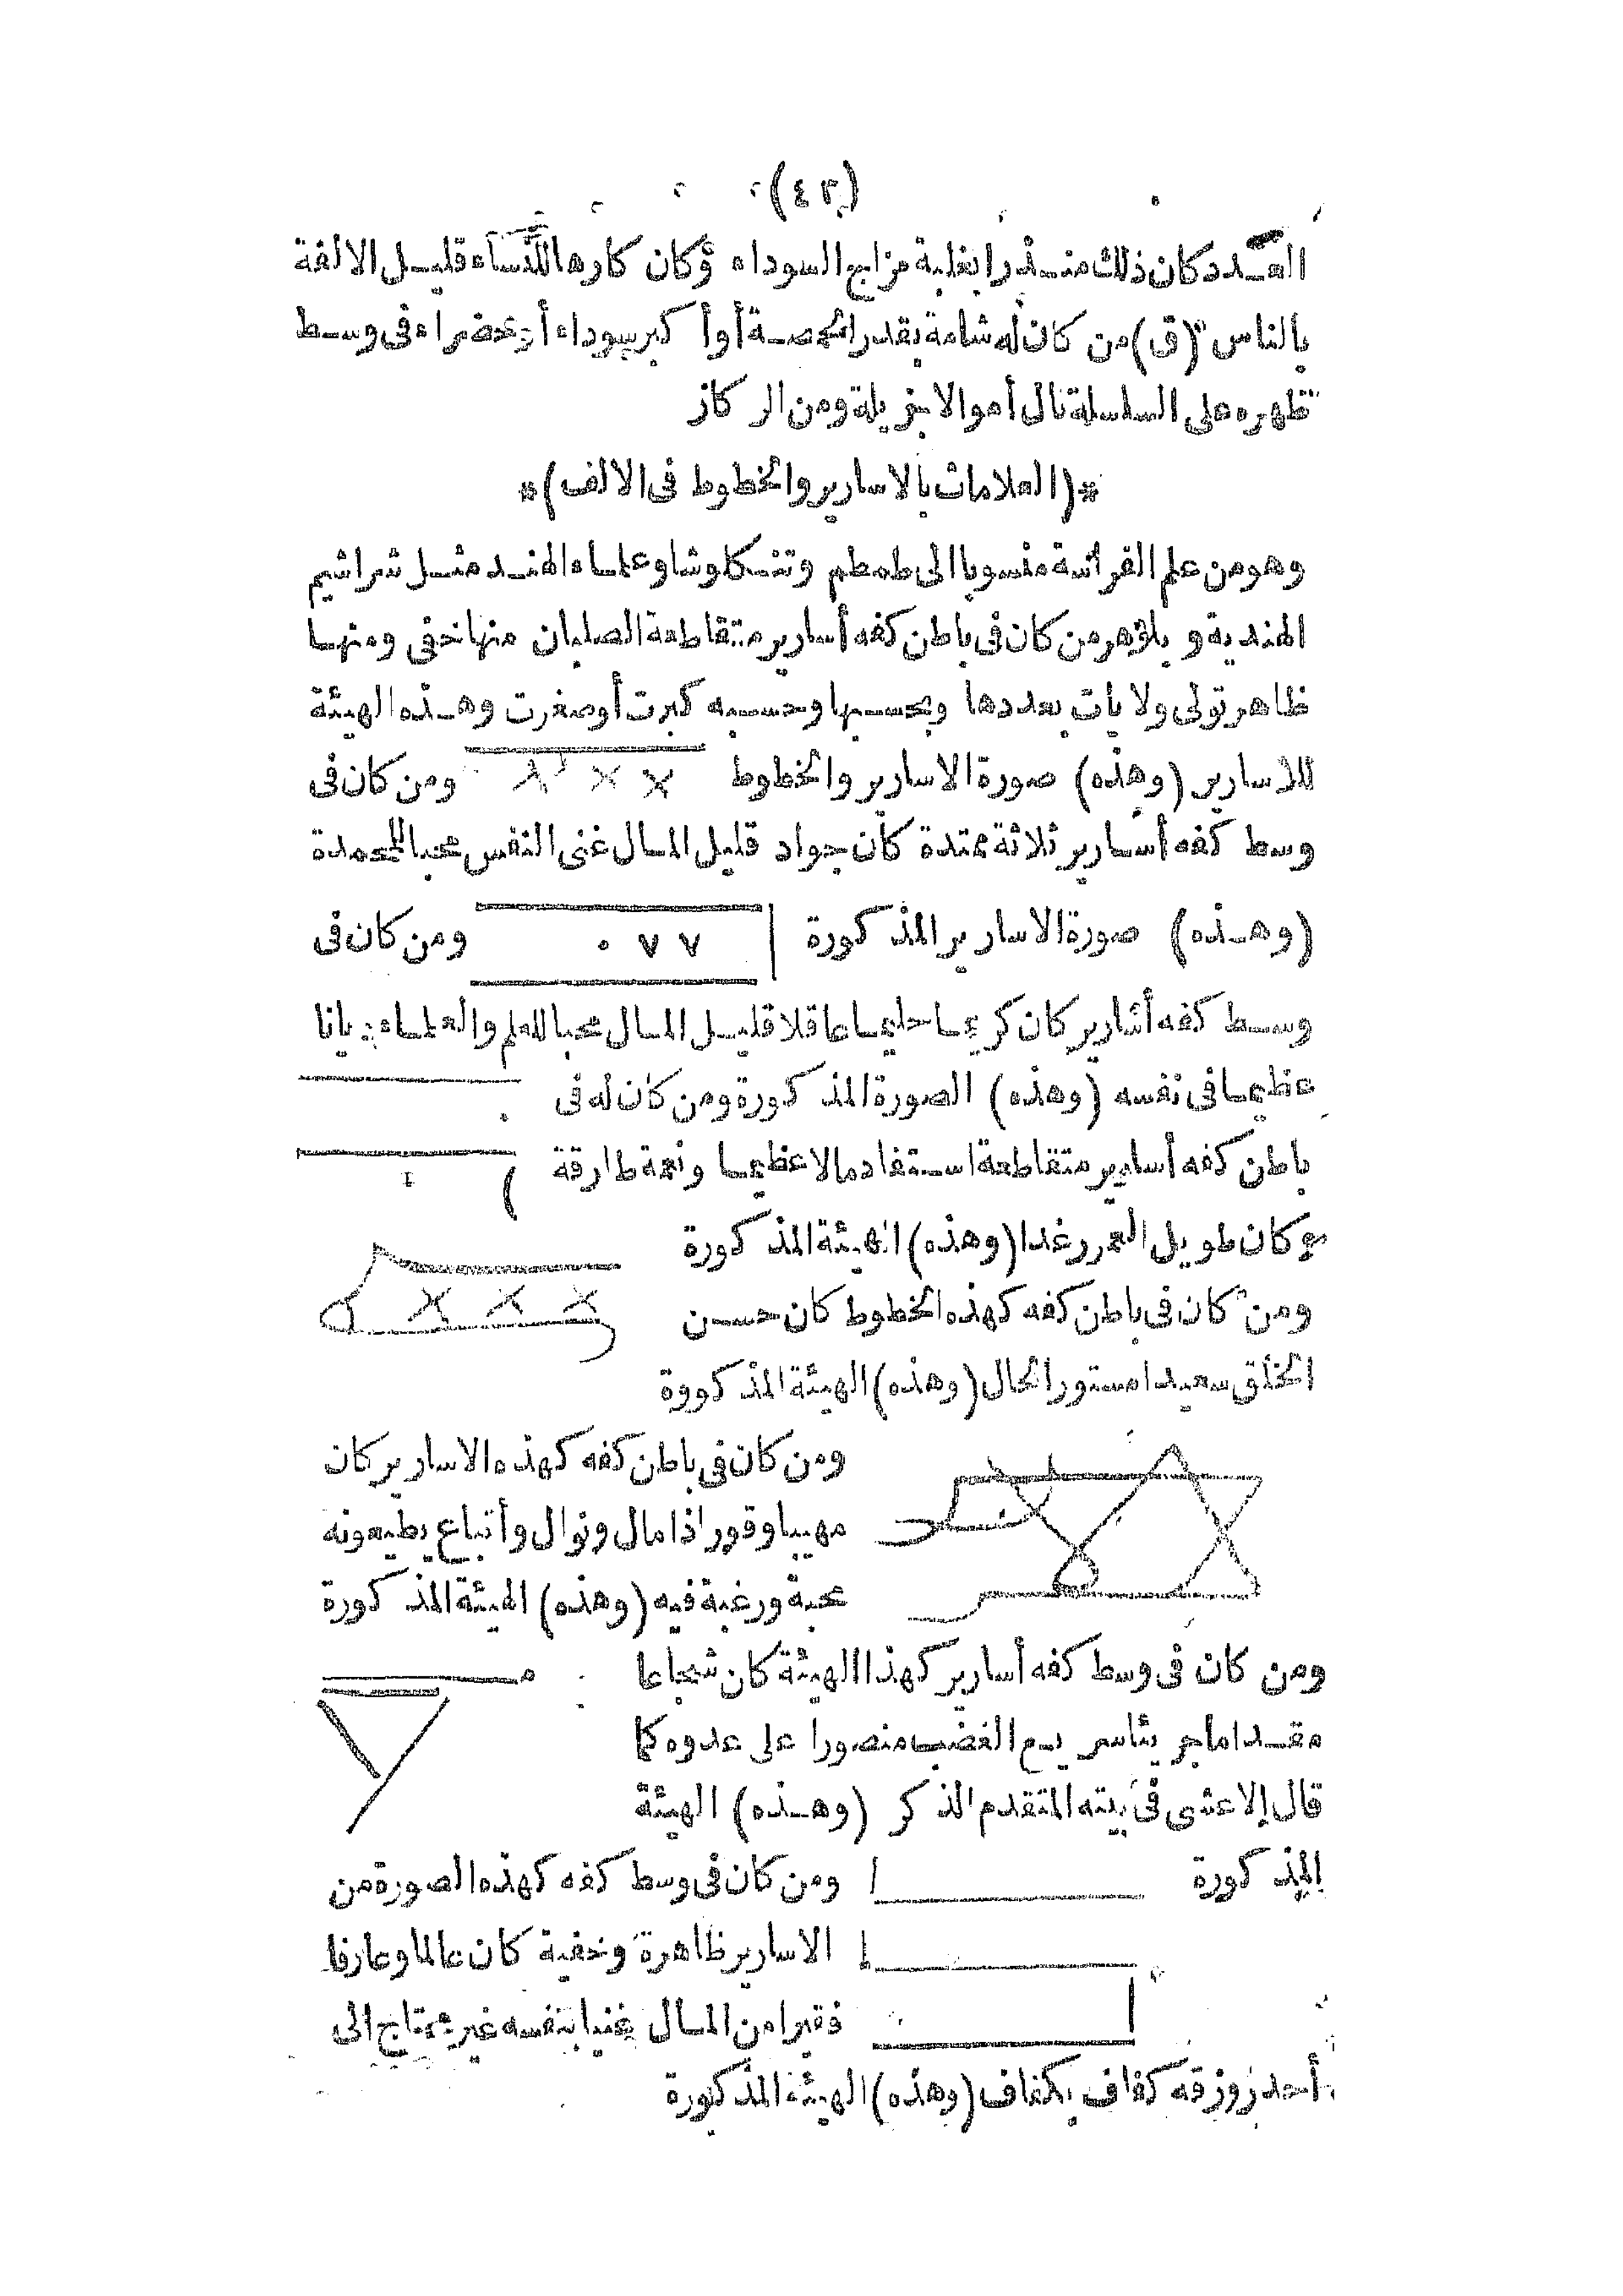 (٤٢)
العدد كان ذلك منذرا بغلبة مزاج السوداء وكان كارها للنساء قليل الالفة
بالناس (ق) من كان له شامة بقدر الحمصة أو أكبر سوداء أو خضراء فى وسط
ظهره على السلسلة نال أموالا جزيلة ومن الركاز
*(العلامات بالاسارير والخطوط فى الالف)*
وهو من علم الفراسة منسوبا الى طمطم وتنكلوشا وعلماء الهند مثل شراشيم
الهندية و من كان فى باطن كفه أسارير متقاطعة الصلبان منها خفى ومنها
ظاهر تولى ولايات بعددها وبحسبها وحسبه كبرت أو صغرت وهذه الهيئة
للاسارير (وهذه) صورة الاسارير والخطوط ومن كان فى
وسط كفه أسارير ثلاثة ممتدة كان جواد قليل المال غنى النفس محبا للمحمدة
(وهذه) صورة الاسارير المذكورة ٧ ٧ ٠ ومن كان فى
وسط كفه أسارير كان كريما حليما عاقلا قليل المال محبا للعلم والعلماء
عظيما فى نفسه (وهذه) الصورة المذكورة ومن كان له فى
باطن كفه أسارير متقاطعة استفاد مالا عظيما ونعمة طارقة
وكان طويل العمر رغدا (وهذه) الهيئة المذكورة
ومن كان فى باطن كفه كهذه الخطوط كان حسن
الخلق سعيدا مستور الحال (وهذه) الهيئة المذكووة
ومن كان فى باطن كفه كهذه الاسارير كان
مهيبا وقورا ذا مال ونوال وأتباع يطيعونه
محبة ورغبة فيه (وهذه) الهيئة المذكورة
ومن كان فى وسط كفه أسارير كهذا الهيئة كان شجاعا
مقداما الغضب منصورا على عدوه كما
قال الاعشى فى بيته المتقدم الذكر (وهذه) الهيئة
المذكورة ومن كان فى وسط كفه كهذه الصورة من
الاسارير ظاهرة وخفية كان عالما وعارفا
فقيرا من المال غنيا بنفسه غير محتاج الى
أحد ورزقه كفاف بكفاف (وهذه) الهيئة المذكورة